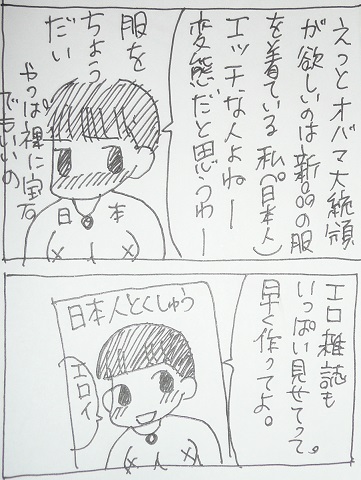 えっとオバマ大統領
が欲しいのは新品の服
を着ている私(日本人)
エッチな人よねー
変態だと思うわー
服を
ちょう
だい
やっぱ裸に宝石
でもいいの
日本
エロ雑誌も
いっぱい見せてって。
早く作ってよ。
日本人とくしゅう
エロイ